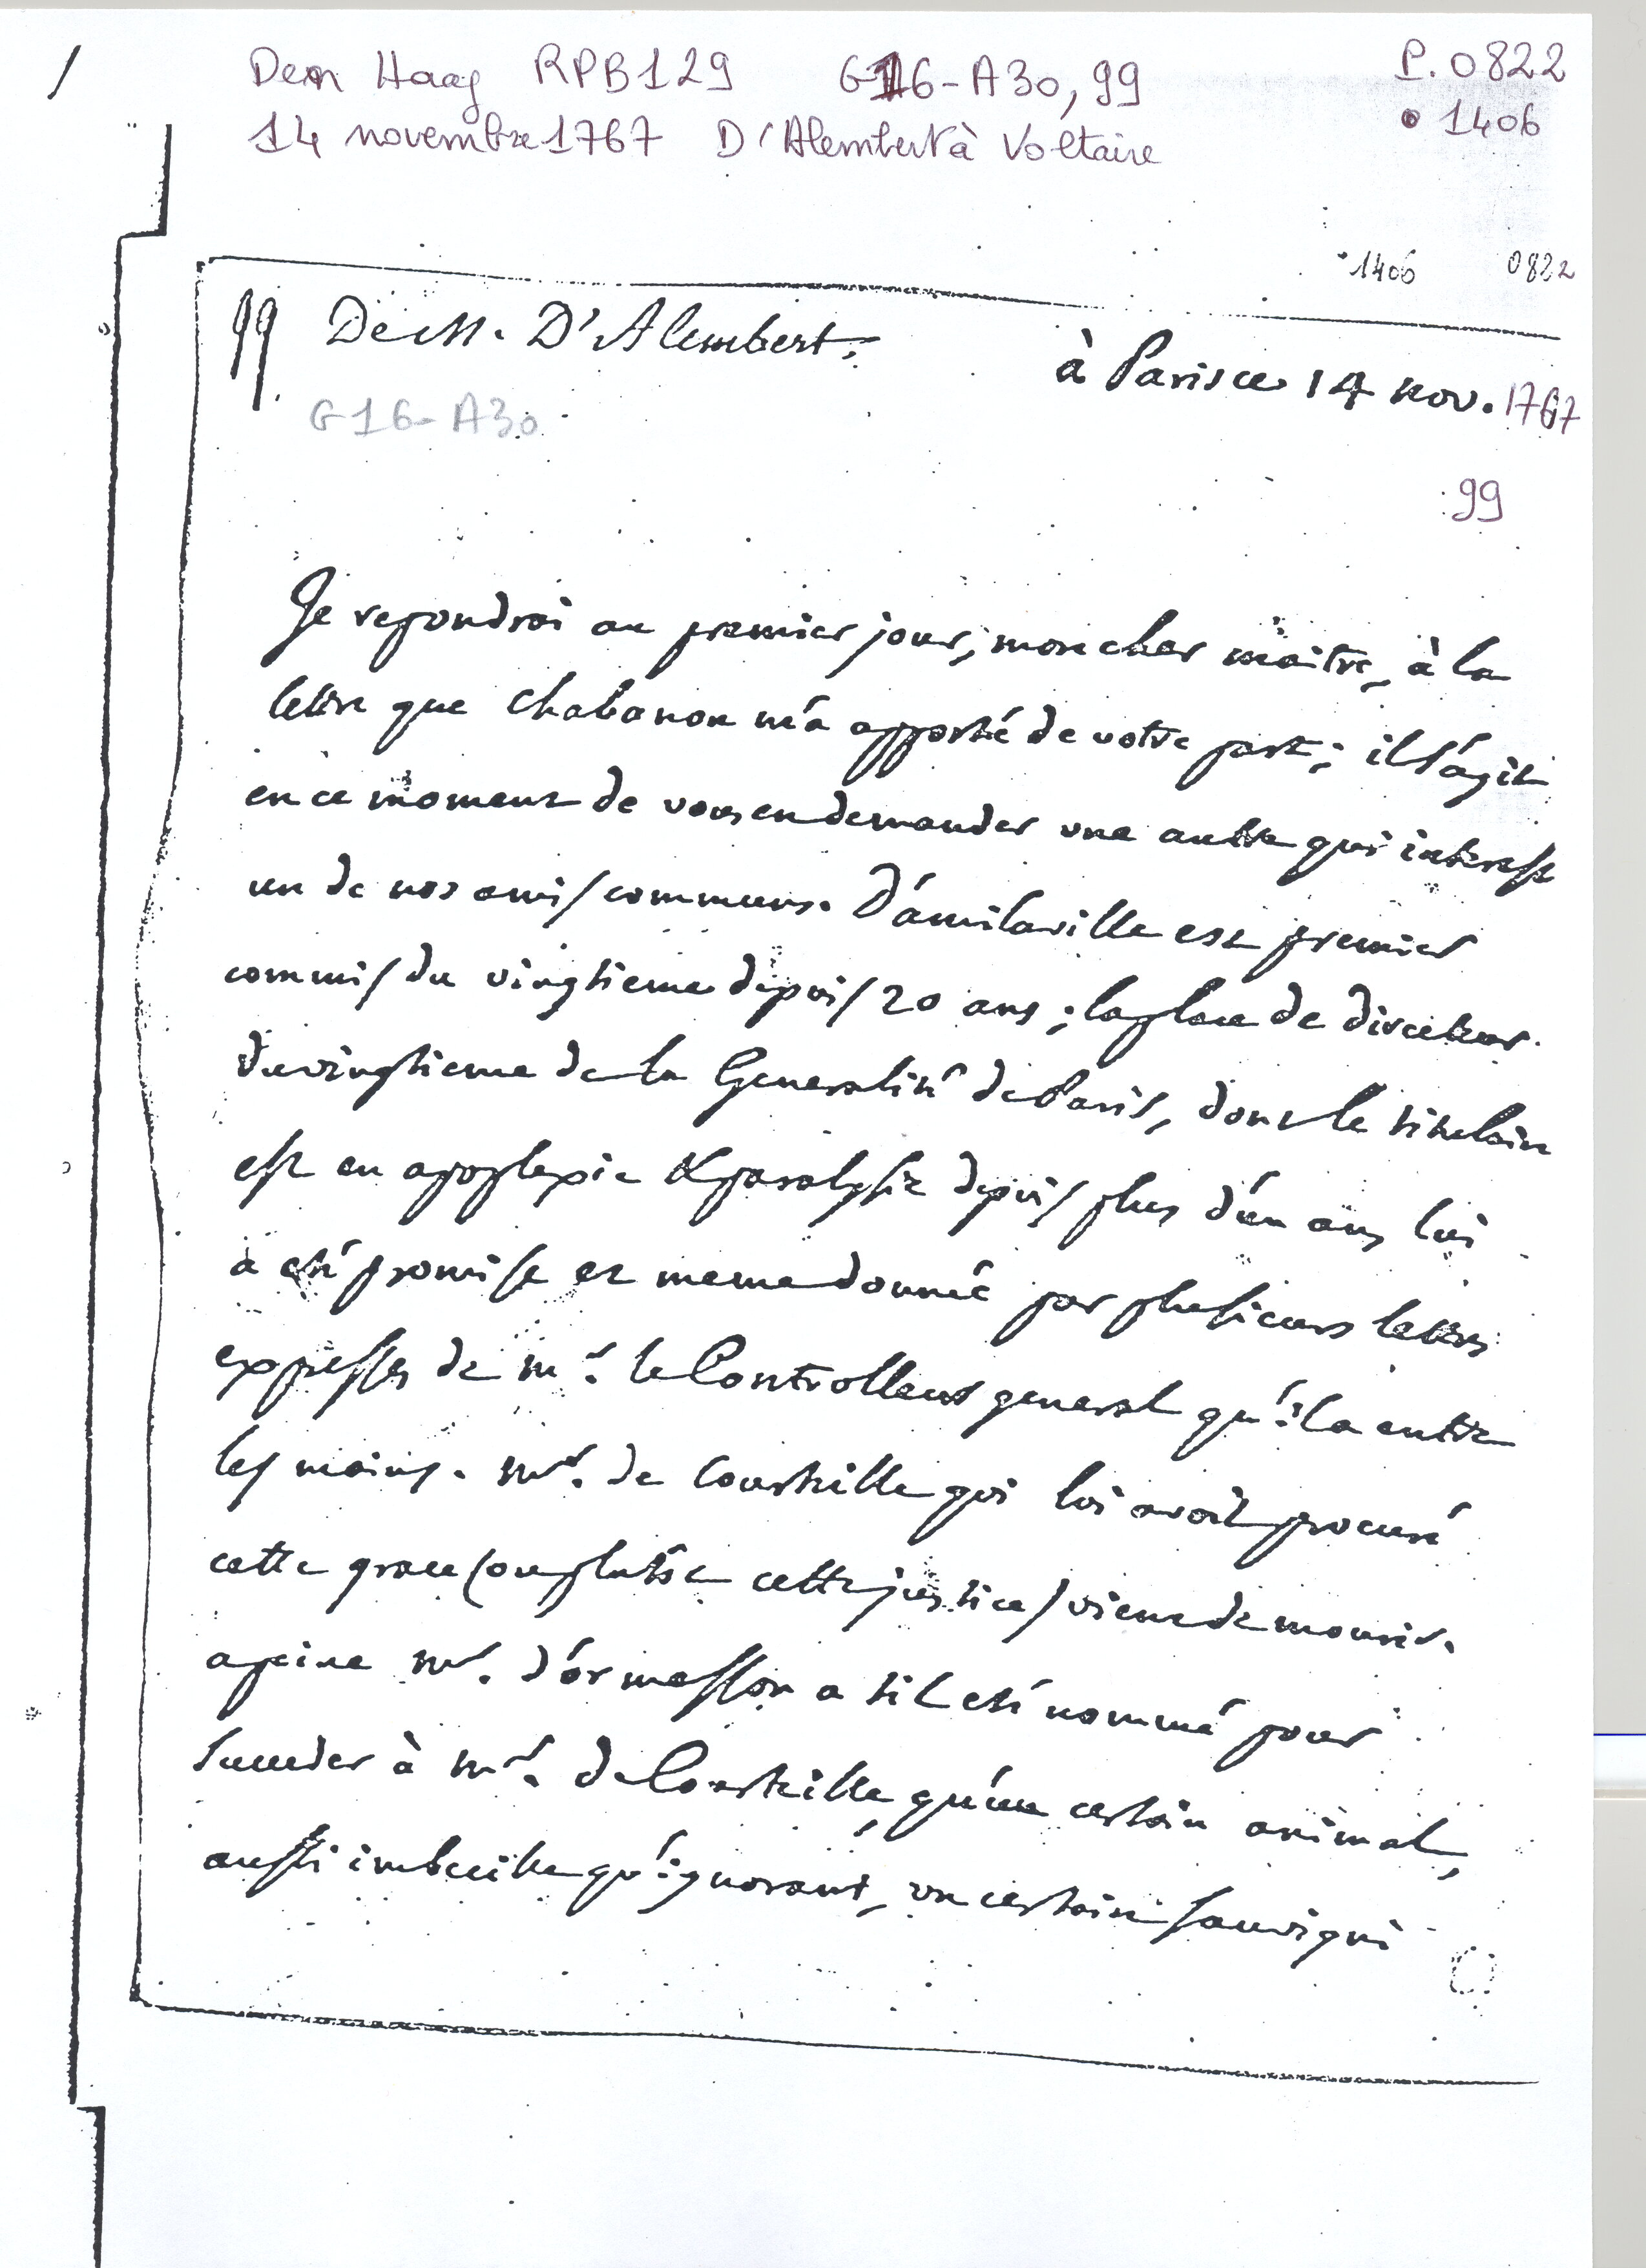 /
Den Haag RPB129 G16-A30, 99 P. 0822
14 novembre 1767 D'Alembert à Voltaire • 1406
1406 0822
99. De M. D'Alembert.
à Paris ce 14 nov. 1767
G16-A30
99
Je repondrai au premier jour, mon cher maitre, à la
lettre que Chabanon m'a apporté de votre part; il s'agit
en ce moment de vous en demander une autre qui interesse
un de nos amis communs. D'amilaville est premier
commis du vingtieme depuis 20 ans; la place de directeur
du vingtieme de la Generalité de Paris, dont le titulaire
est en apoplexie & paralysie depuis plus d'un an, lui
a eté promise et meme donnée par plusieurs lettres
expresses de mr. le Controlleur general qu'il a entre
les mains. mr. de Courteille qui lui avoit procuré
cette grace (ou plutôt cette justice) vient de mourir.
a peine mr. d'ormesson a til eté nommé pour
succeder à mr. de Courteille, qu'un certain animal,
aussi imbecille qu'ignorant, un certain Sauvigni